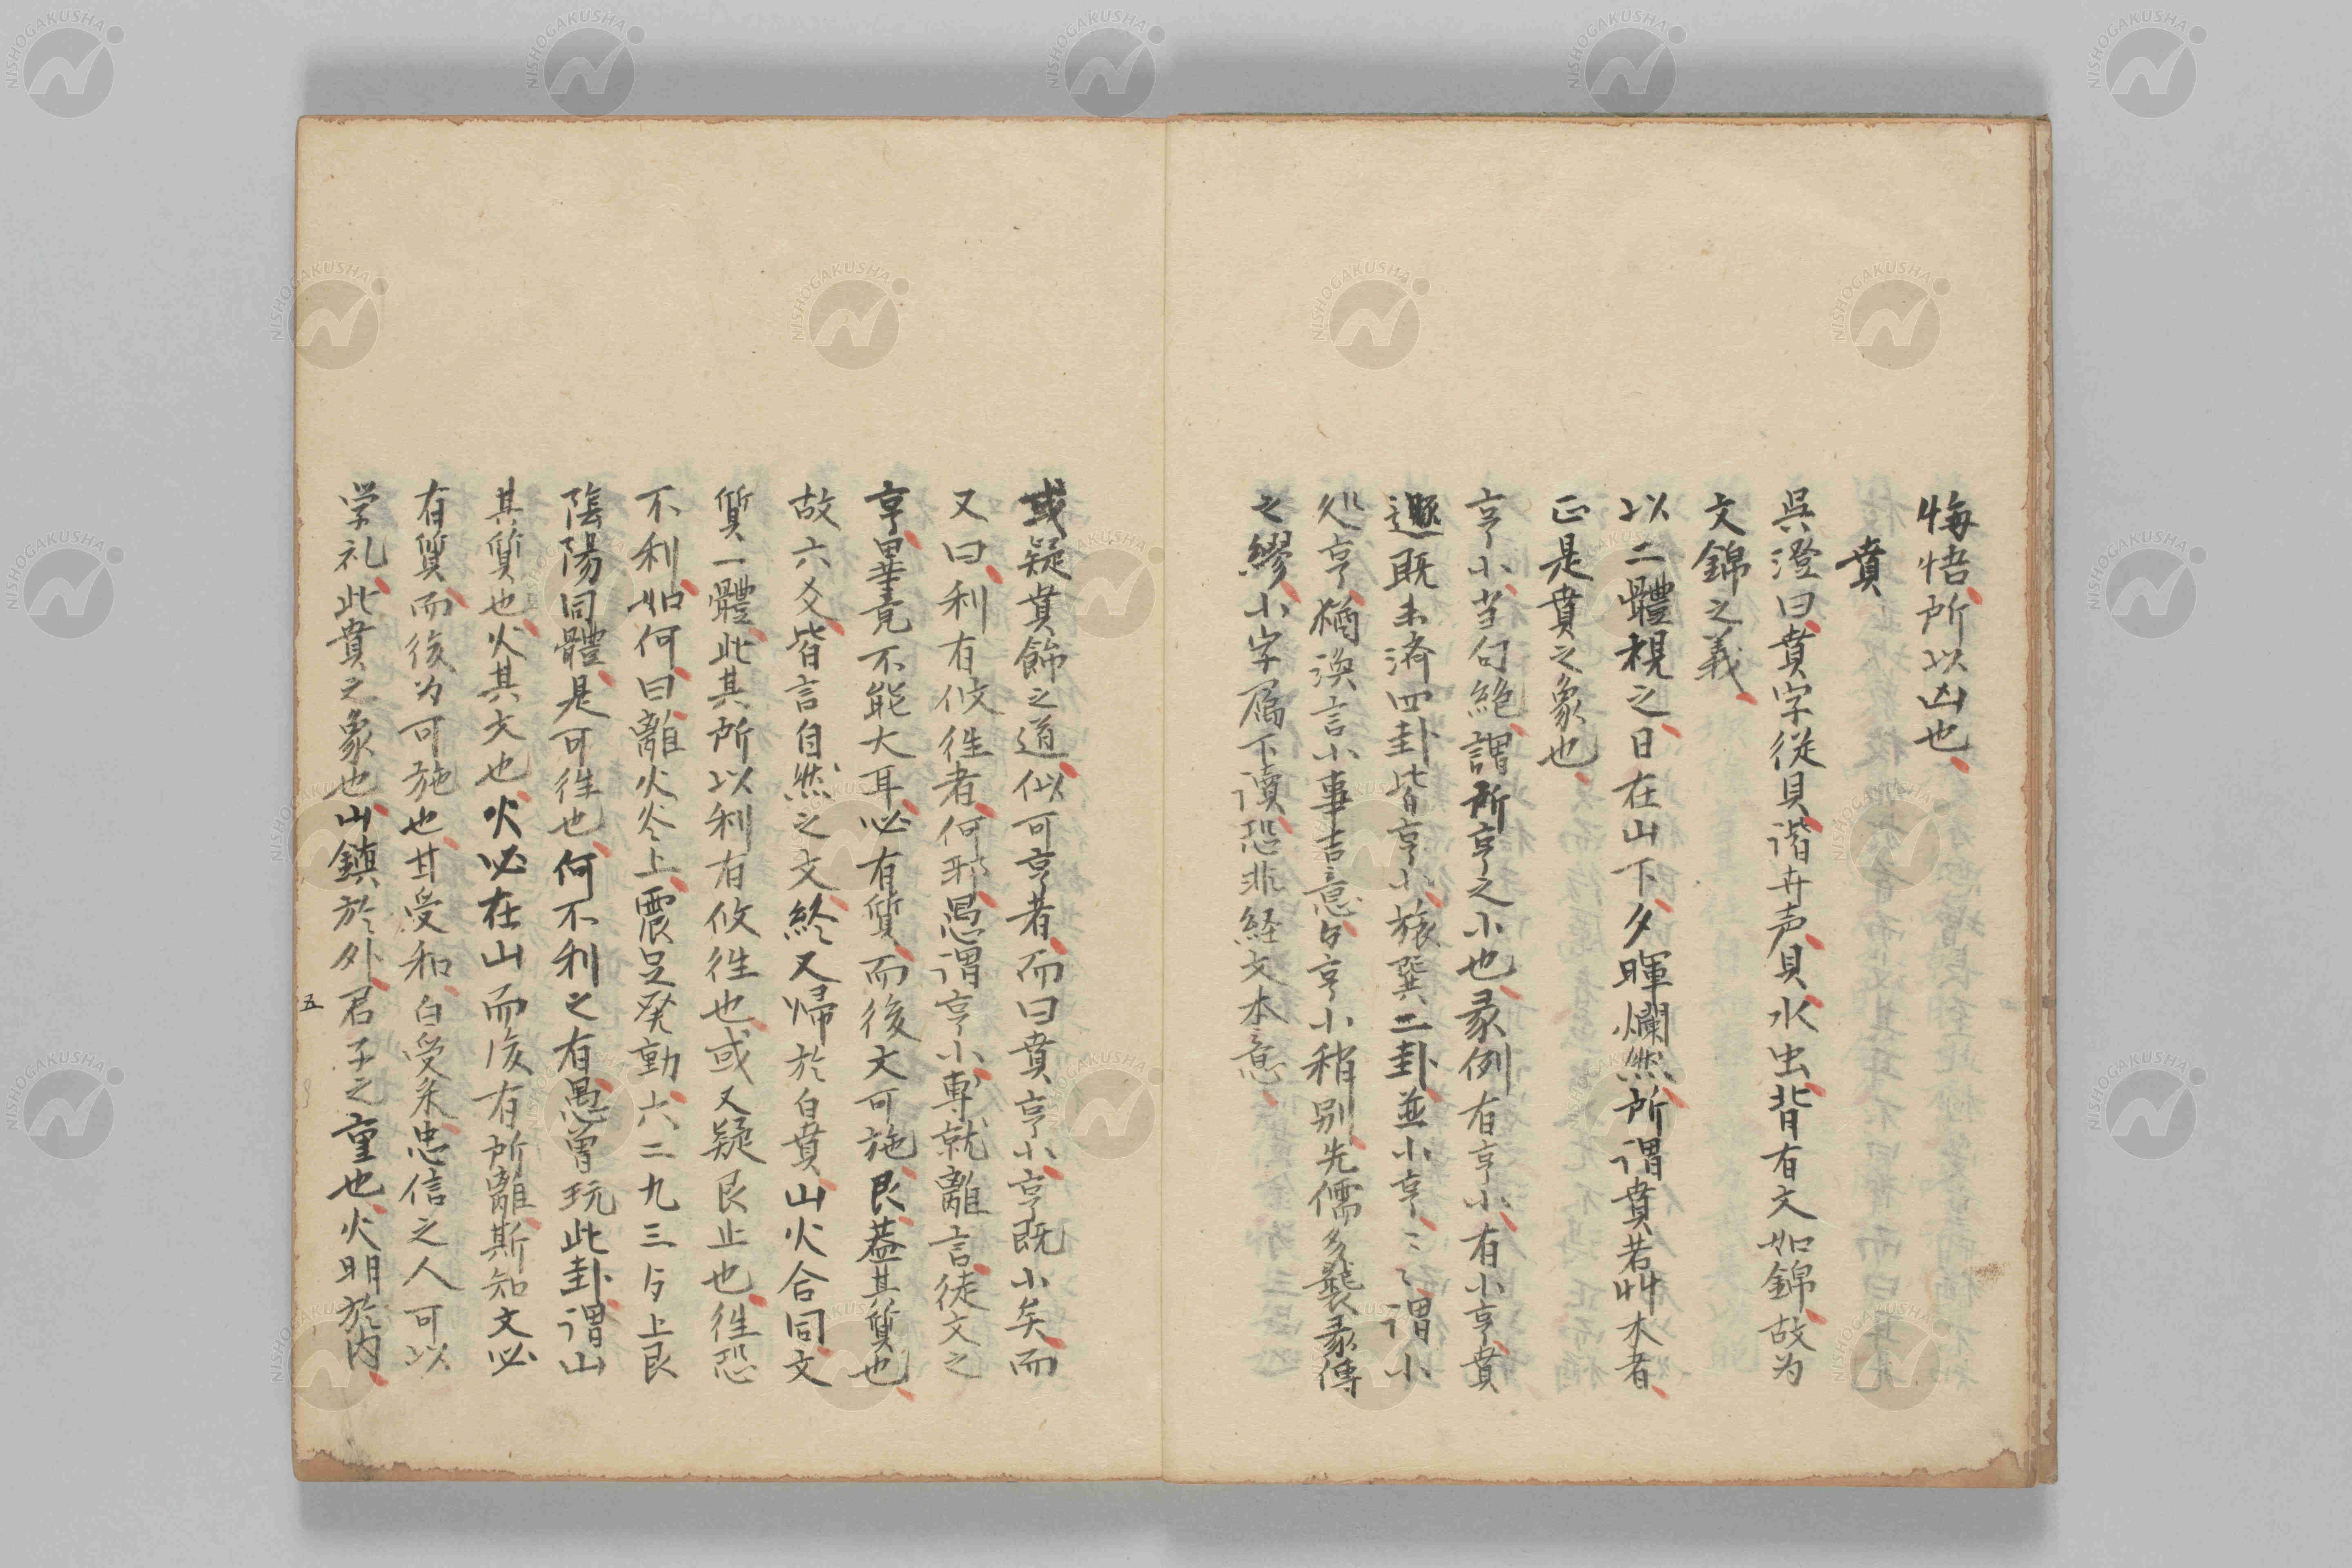 悔悟、所以凶也、
賁
吳澄曰、賁字從貝、諧卉声、貝、水虫、背有文如錦、故为
文錦之義、
以二體視之、日在山下、夕暉爛然、所謂賁若艸木者、
正是賁之象也、
亨小、当句絶、謂所亨之小也、彖例有亨小、有小亨、賁
遯既未済四卦皆亨小、旅巽二卦並小亨、〻〻謂小
処亨、猶渙言小事吉、意与亨小稍别、先儒多襲彖傳
之繆、小字属下讀、恐非経文本意、
或疑賁飾之道、似可亨者、而曰賁亨小、亨既小矣、而
又曰、利有攸往者、何邪、愚謂亨小、專就離言、徒文之
亨、畢竟不能大耳、必有質、而後文可施、艮、蓋其質也、
故六爻、皆言自然之文、終又帰於白賁、山火合同、文
質一體、此其所以利有攸往也、或又疑艮止也、往恐
不利、如何、曰、離火炎上、震足発動、六二九三与上艮
陰陽同體、是可往也、何不利之有、愚曽玩此卦、謂山
其質也、火其文也、火必在山而後有所離、斯知文必
有質、而後为可施也、甘受和、白受采、忠信之人可以
学礼、此賁之象也、山鎮於外、君子之重也、火明於内、
五
NISHOGAKUSHA